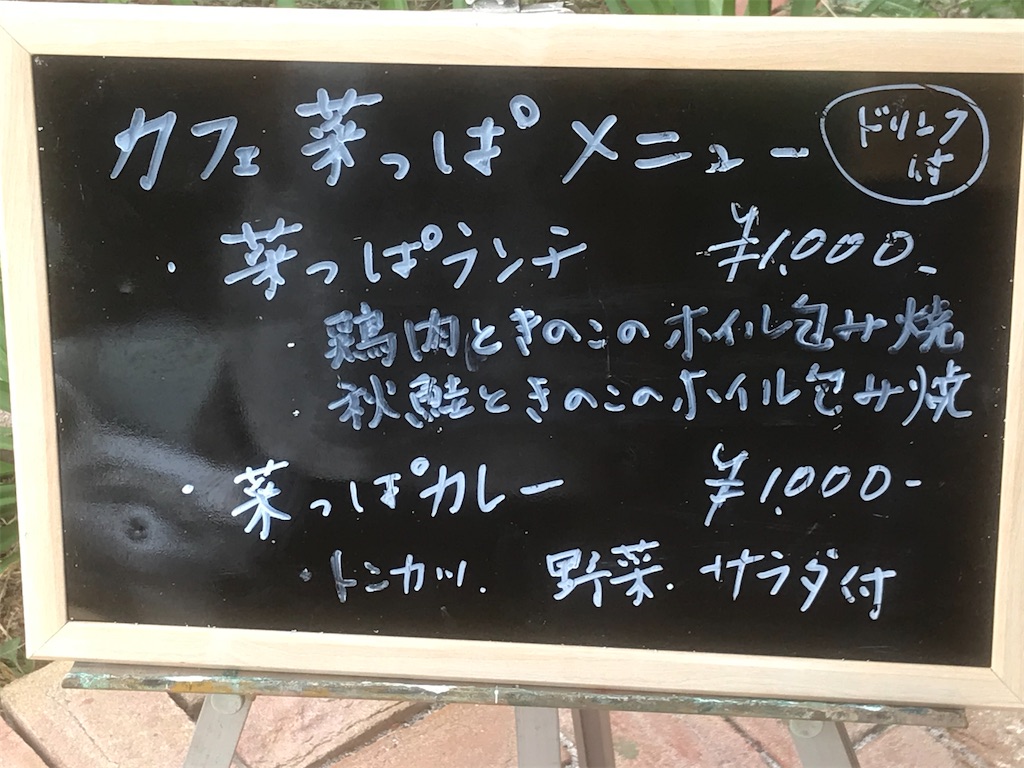 カフェ菜っぱメニュー
ドリンク
付
・菜っぱランチ ¥1,000-
・鶏肉ときのこのホイル包み焼
・秋鮭ときのこのホイル包み焼
・菜っぱカレー ¥1,000-
・トンカツ. 野菜. サラダ付